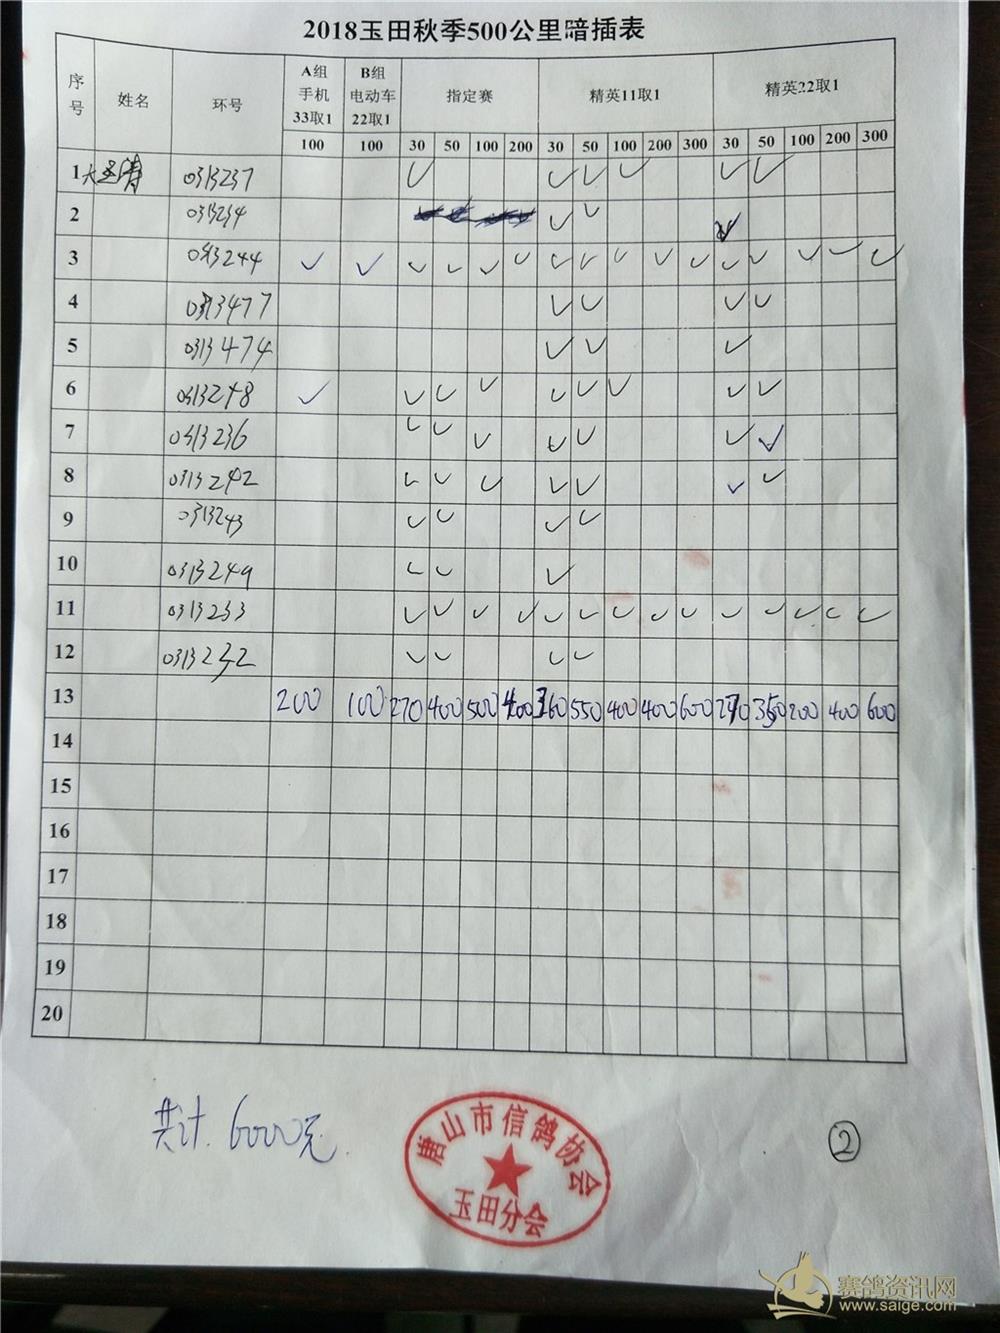 2018玉田秋季500公里暗插表
序号 姓名 环号 A组手机33取1 B组电动车22取1 指定赛 精英11取1 精英22取1
100 100 30 50 100 200 30 50 100 200 300 30 50 100 200 300
1 0313237 ✓ ✓ ✓ ✓ ✓ ✓
2 0313234 ✓ ✓ ✓
3 0313244 ✓ ✓ ✓ ✓ ✓ ✓ ✓ ✓ ✓ ✓ ✓ ✓ ✓ ✓ ✓ ✓
4 0313477 ✓ ✓ ✓ ✓
5 0313474 ✓ ✓ ✓
6 0313248 ✓ ✓ ✓ ✓ ✓ ✓ ✓ ✓ ✓
7 0313236 ✓ ✓ ✓ ✓ ✓ ✓ ✓
8 0313242 ✓ ✓ ✓ ✓ ✓ ✓ ✓
9 0313243 ✓ ✓ ✓ ✓
10 0313249 ✓ ✓ ✓
11 0313233 ✓ ✓ ✓ ✓ ✓ ✓ ✓ ✓ ✓ ✓ ✓ ✓ ✓ ✓
12 0313232 ✓ ✓ ✓ ✓
13 200 100 270 400 500 400 360 550 400 400 600 270 350 200 400 600
14
15
16
17
18
19
20
共计. 6000元
唐山市信鸽协会
玉田分会
②
赛鸽资讯网
www.saige.com